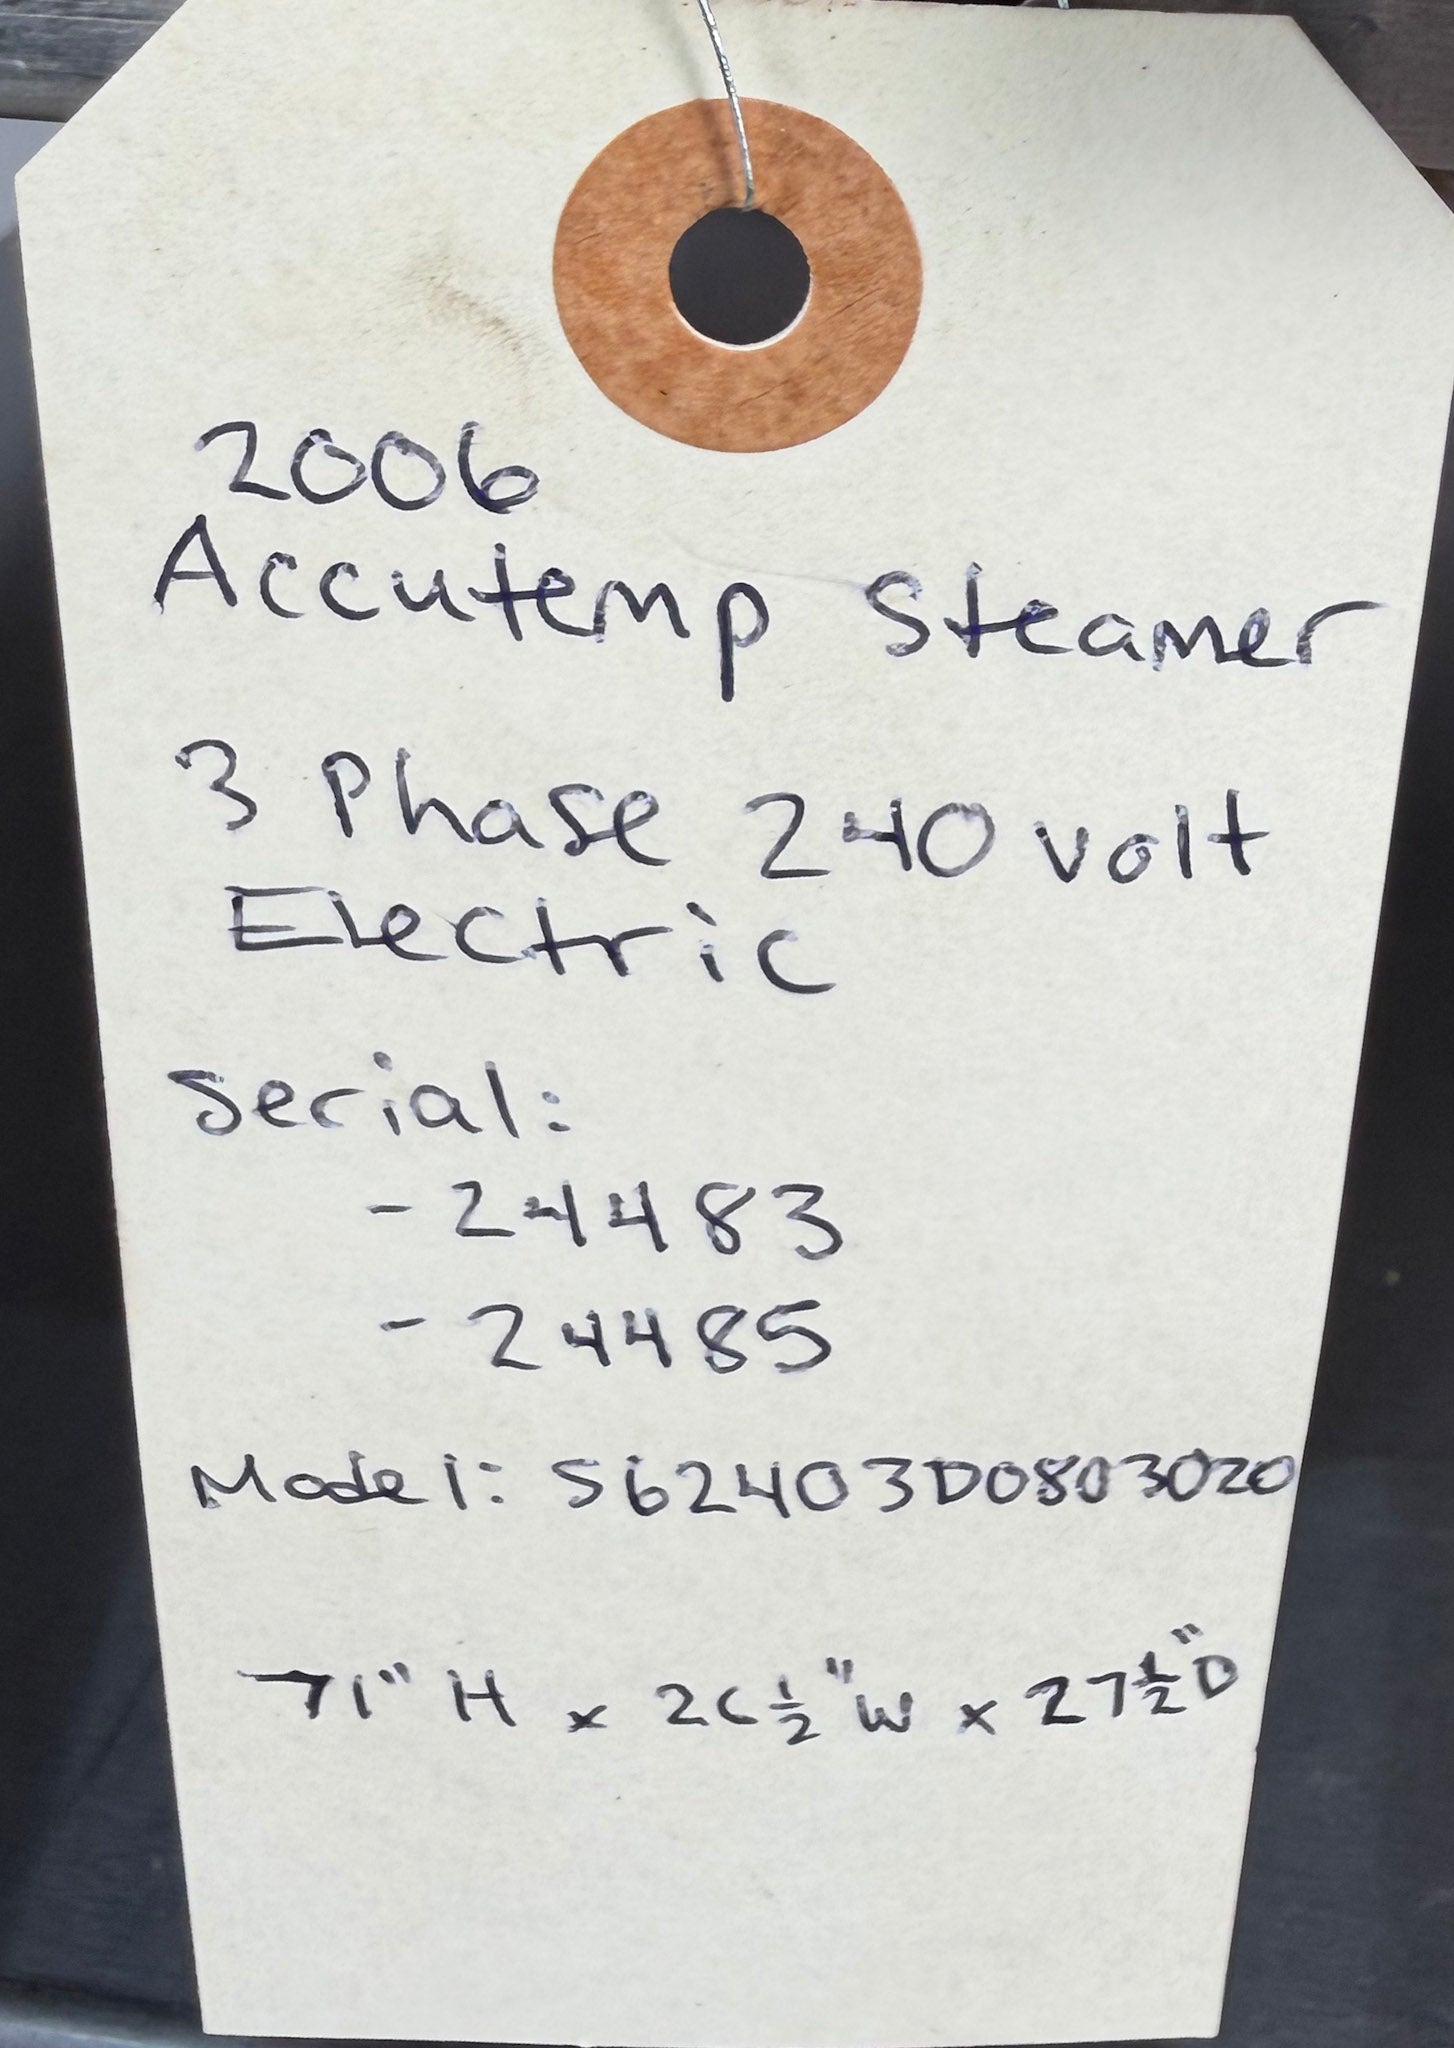 2006
Accutemp Steamer
3 Phase 240 volt
Electric
Serial:
- 24483
- 24485
Model: S62403D0803020
71" H x 26 1/2" W x 27 1/2" D